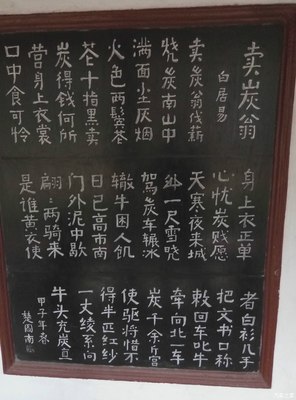 卖炭翁
白居易
卖炭翁伐薪
烧炭南山中
满面尘灰烟
火色两鬓苍
苍十指黑卖
炭得钱何所
营身上衣裳
口中食可怜
身上衣正单
心忧炭贱愿
天寒夜来城
外一尺雪晓
驾炭车辗冰
辙牛困人饥
日已高市南
门外泥中歇
翩〻两骑来
是谁黄衣使
者白衫儿手
把文书口称
敕回车叱牛
牵向北一车
炭千余斤宫
使驱将惜不
得半匹红纱
一丈绫系向
牛头充炭直
甲子年春
楚图南